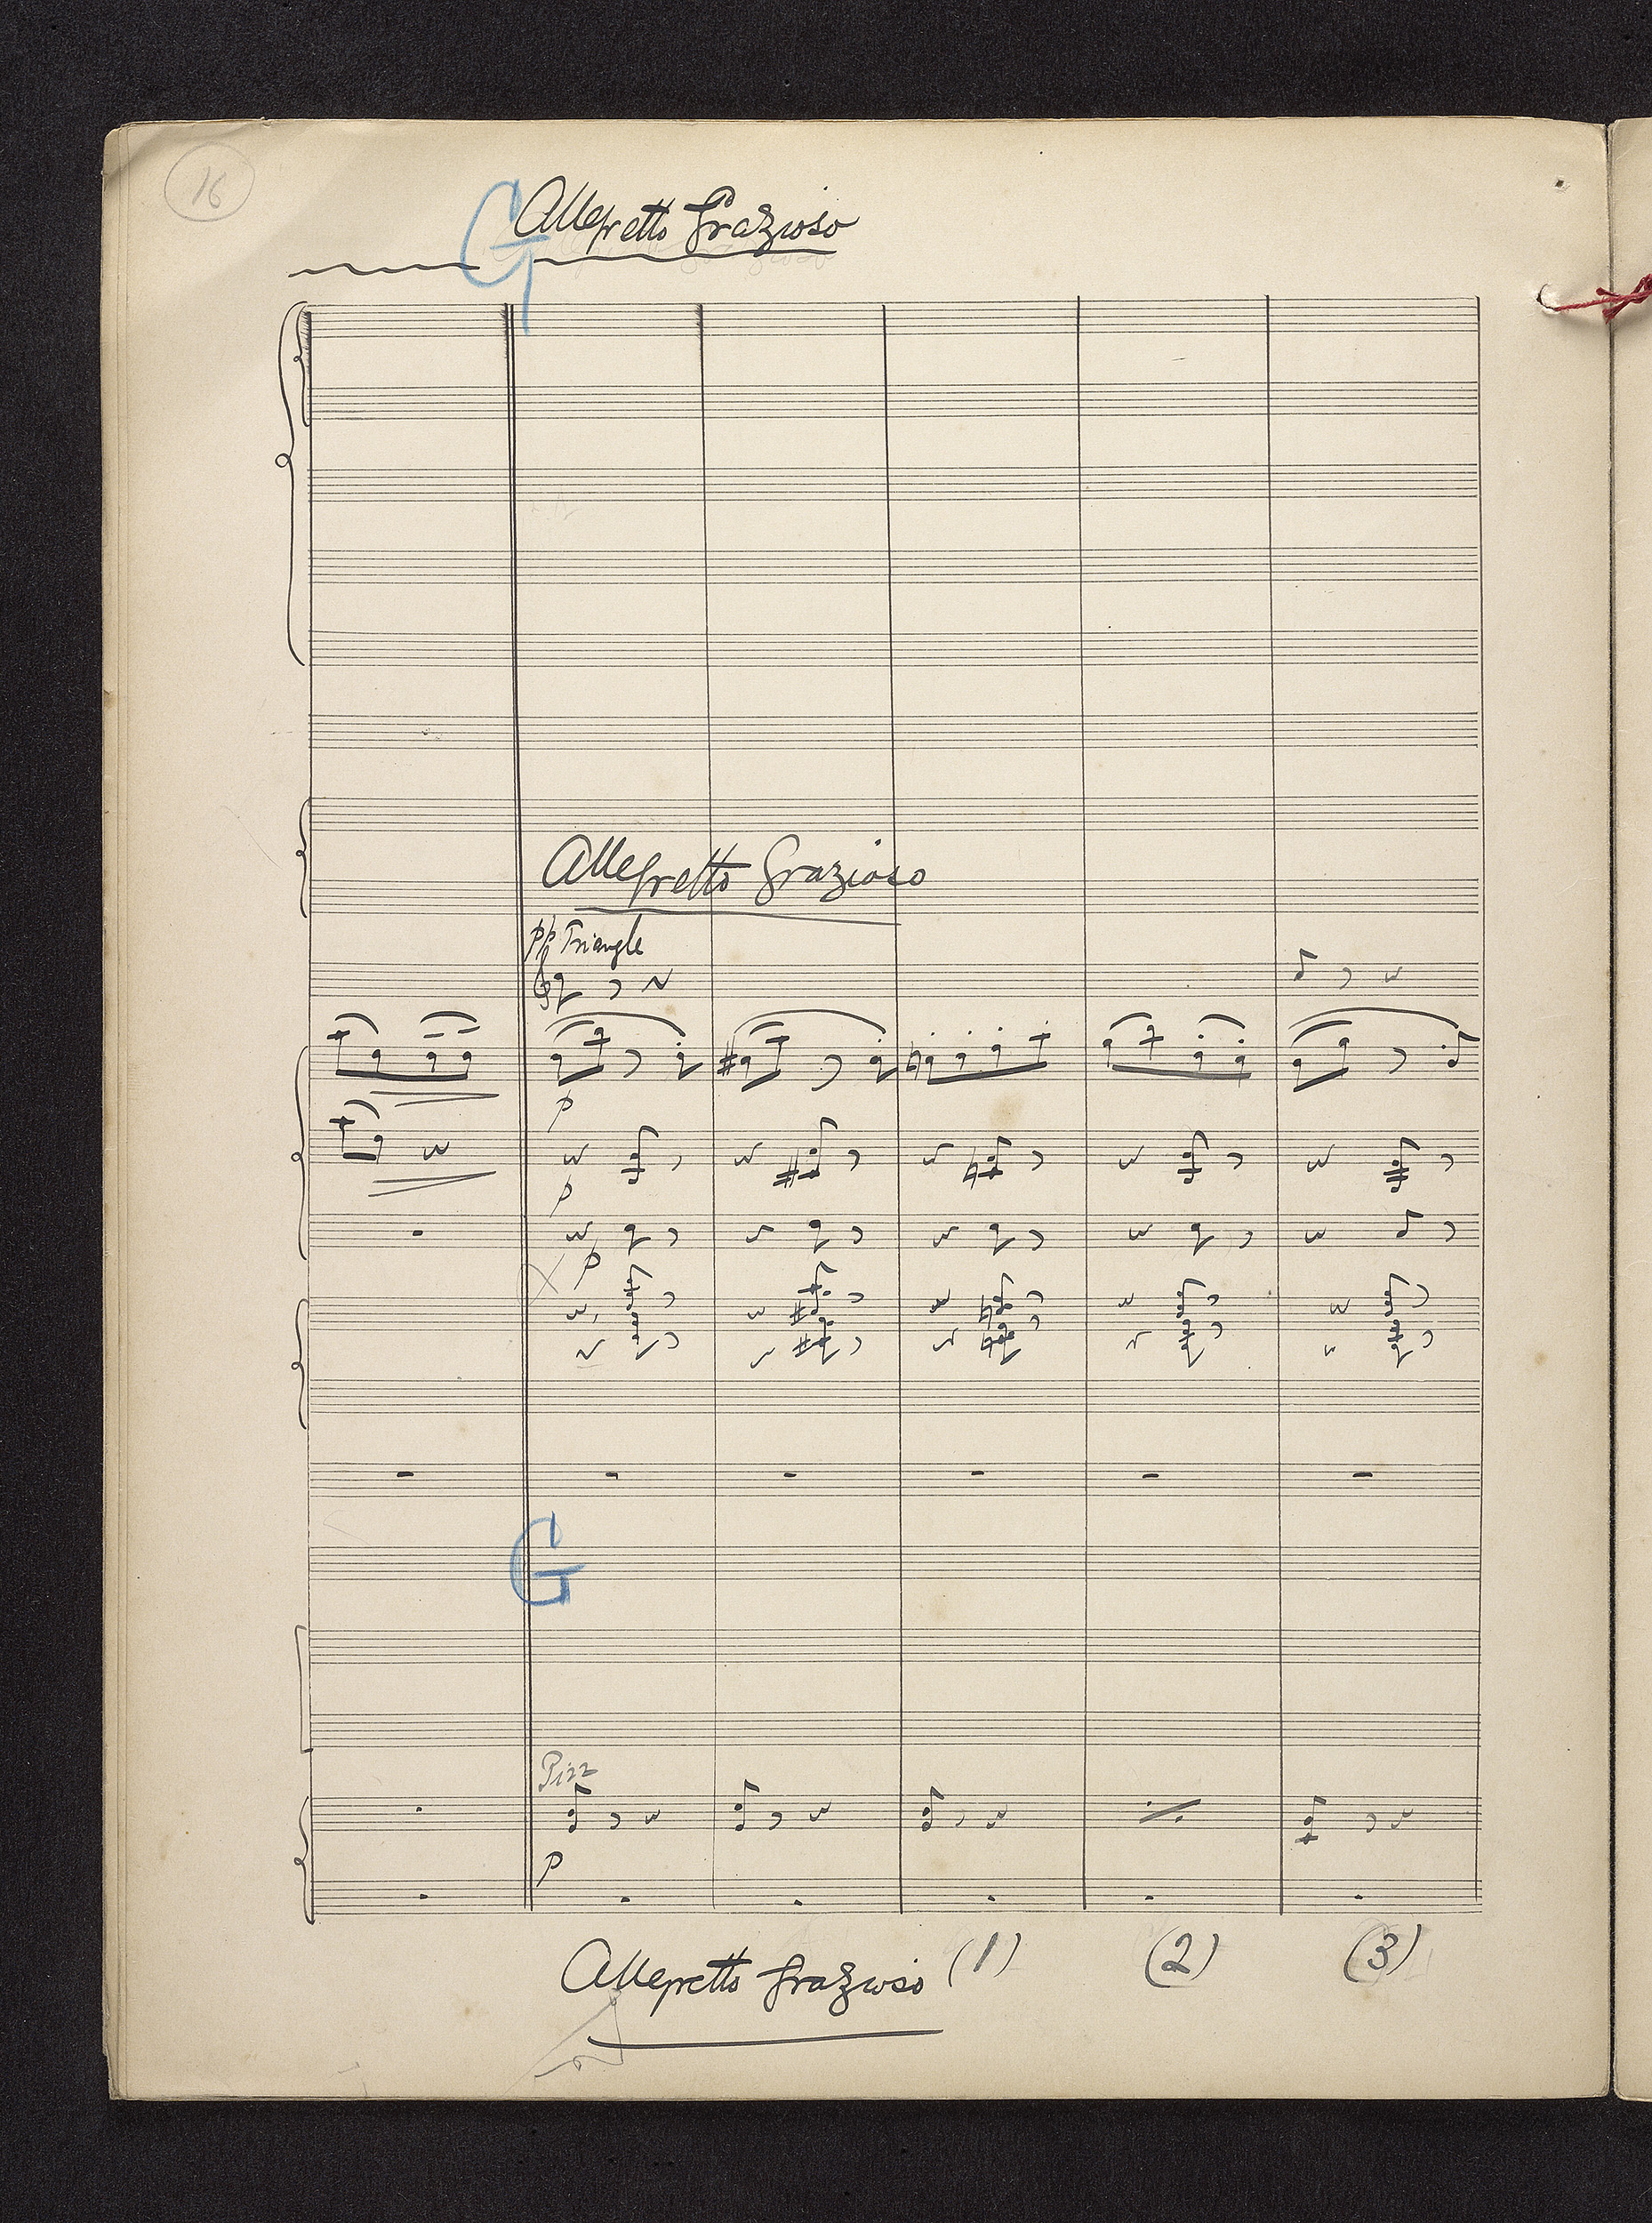 16
G Allegretto Grazioso
Allegretto Grazioso
pp Triangle
p
p
p
G
Pizz
p
Allegretto Grazioso (1) (2) (3)